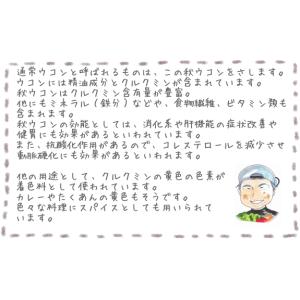 通常ウコンと呼ばれるものは、この秋ウコンをさします。
ウコンには精油成分とクルクミンが含まれています。
秋ウコンはクルクミン含有量が豊富。
他にもミネラル（鉄分）などや、食物繊維、ビタミン類も
含まれます。
秋ウコンの効能としては、消化系や肝機能の症状改善や
健胃にも効果があるといわれています。
また、抗酸化作用があるので、コレステロールを減少させ
動脈硬化にも効果があるといわれます。
他の用途として、クルクミンの黄色の色素が
着色料として使われています。
カレーやたくあんの黄色もそうです。
色々な料理にスパイスとしても用いられて
います。